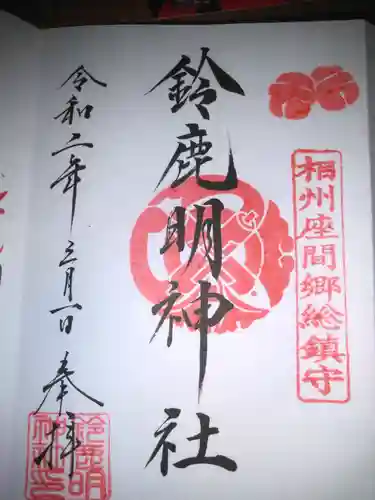 相州座間郷総鎮守
鈴鹿明神社
令和二年三月一日
奉拝
鈴鹿明
神社印